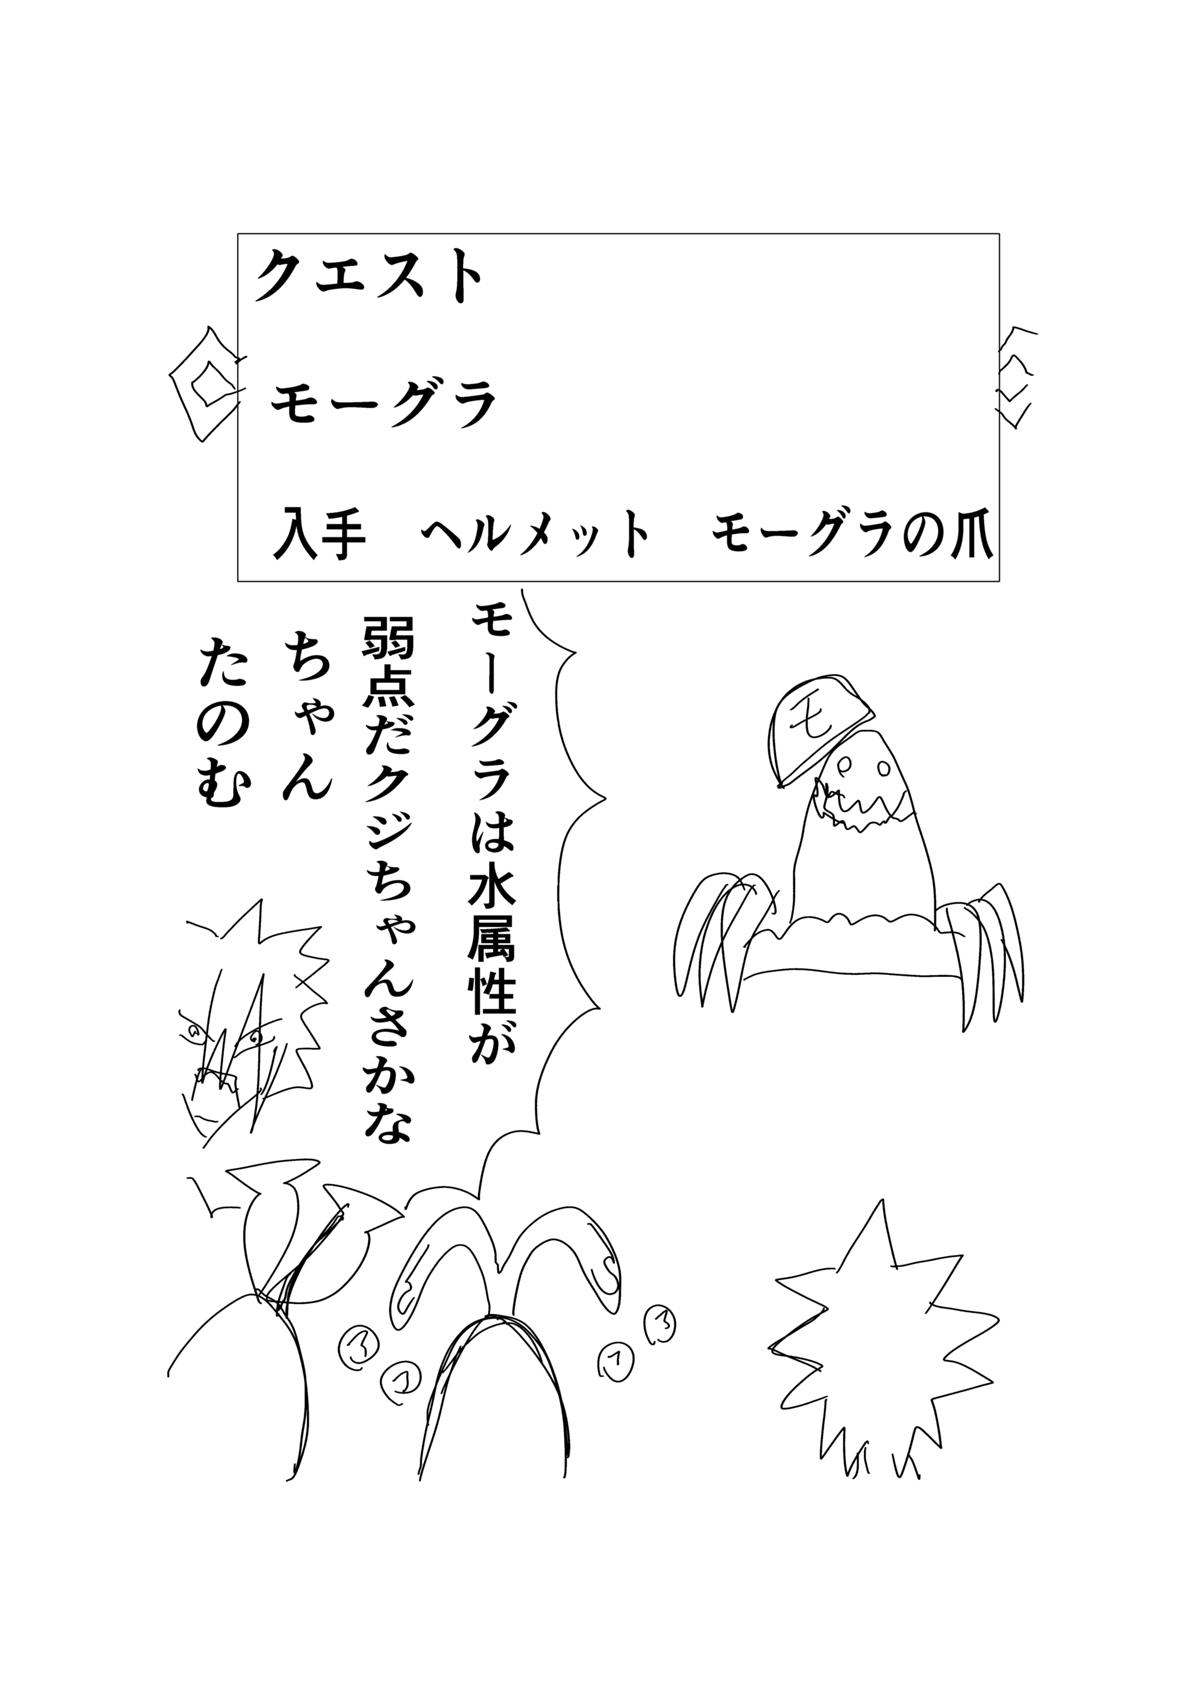 クエスト
モーグラ
入手　ヘルメット　モーグラの爪
モーグラは水属性が
弱点だクジちゃんさかな
ちゃん
たのむ
モ